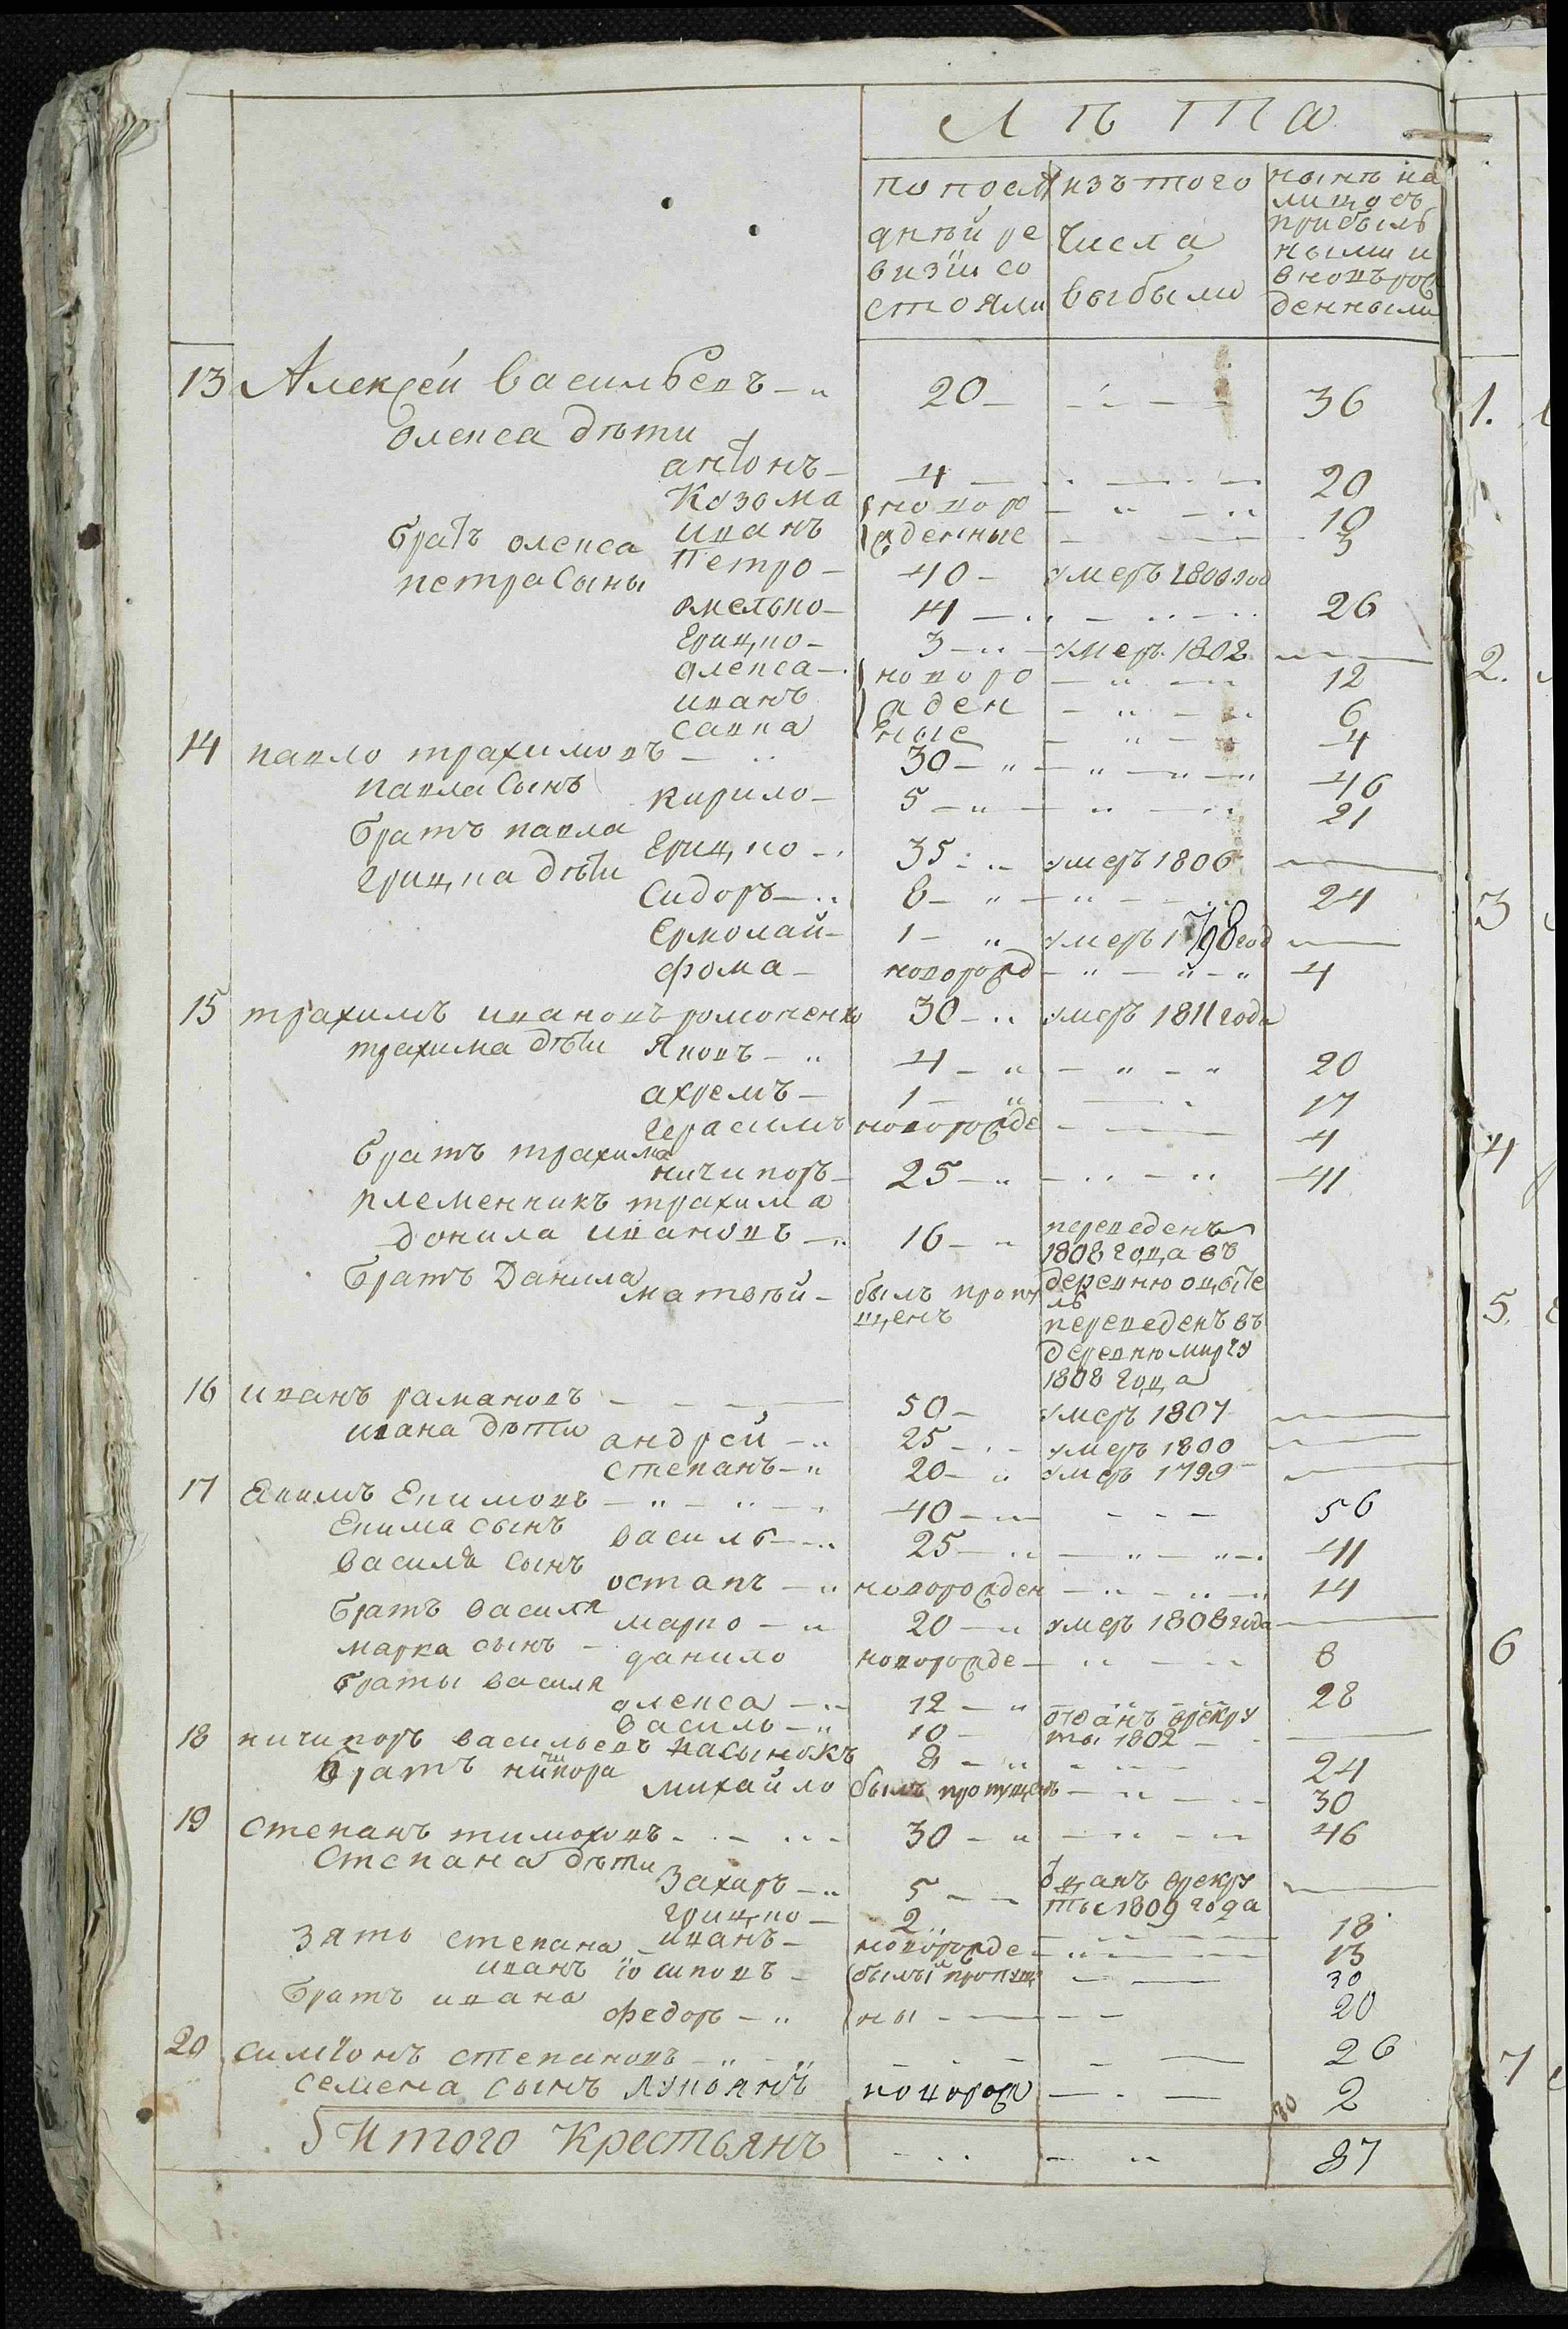 Лѣта
по послѣ изъ того нынѣ на
днѣй ре числа лицо съ
визіи со выбыли прибылѣ
стояли ными и
вновь рож
денными
13 Алексей Васильевъ 20 36
Олекса дѣти
антонъ 4 20
Козома новоро 10
иванъ жденные 3
братъ олекса Петро 40 умеръ 1800 год
петра Сыны
омелько 4 26
Грицко 3 умеръ 1802
олекса новоро 12
иванъ жден 6
савка ные 4
14 павло трахимовъ 30 46
павла Сынъ кирило 5 21
братъ павла Грицко 35 умеръ 1806
грицка дѣти Сидоръ 8 24
Ермолай 1 умеръ 1798 год
фома новорожд 4
15 трахимъ ивановъ романенко 30 умеръ 1811 года
трахима дѣти Яковъ 4 20
ахремъ 1 17
герасимъ новорожде 4
братъ трахима
ничипоръ 25 41
племенникъ трахима
данила ивановъ 16 переведенъ
1808 года въ
братъ Данила матвѣй былъ пропу деревню
щенъ
переведенъ въ
деревню мирчу
1808 года
16 иванъ рамановъ 50 умеръ 1807
ивана дѣти андрей 25 умеръ 1800
степанъ 20 умеръ 1799
17 Екимъ Екимовъ 40 56
Екима сынъ василь 25 41
василя сынъ
остапъ новорожден 14
братъ василя марко 20 умеръ 1808 года
марка сынъ данило новорожде 8
браты василя
олекса 12 28
василь 10 отданъ врекру
ты 1802
18 ничипоръ васильевъ пасынокъ 8 24
братъ ничипора михайло былъ пропущенъ 30
19 степанъ тимоховъ 30 46
Степана дѣти
Захаръ 5 отданъ врекру
ты 1809 года
грицко 2 18
иванъ новорожде 13
зять степана
иванъ были пропуще 30
братъ ивана федоръ ны 20
20 симіонъ степановъ 26
семена сынъ лукьянъ новорож 2
30
Итого Крестьянъ 87
1.
2.
3
4
5.
6
7